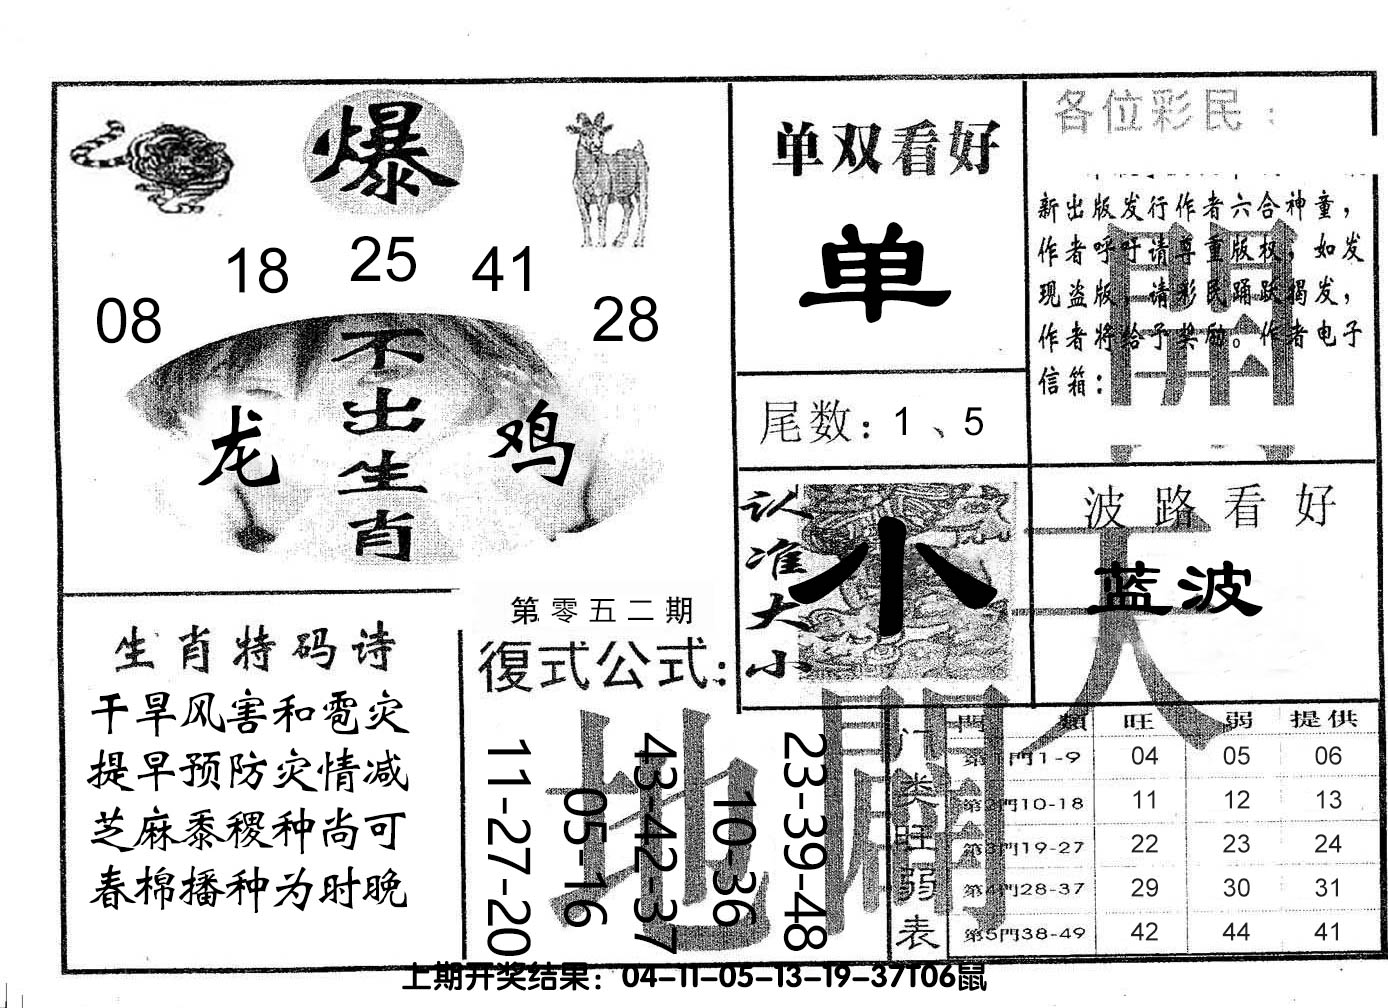 爆
08 18 25 41 28
不出生肖
龙 鸡
单双看好
单
尾数：1、5
各位彩民：
新出版发行作者六合神童，
作者呼吁请尊重版权，如发
现盗版，请彩民踊跃揭发，
作者将给予奖励。作者电子
信箱：
認准大小
小
波路看好
蓝波
生肖特码诗
干旱风害和雹灾
提早预防灾情减
芝麻黍稷种尚可
春棉播种为时晚
第零五二期
復式公式：
11-27-20
05-16
43-42-37
10-36
23-39-48
天
地
開
門类旺弱表
門類 旺 弱 提供
第1門1-9 04 05 06
第2門10-18 11 12 13
第3門19-27 22 23 24
第4門28-37 29 30 31
第5門38-49 42 44 41
上期开奖结果：04-11-05-13-19-37T06鼠